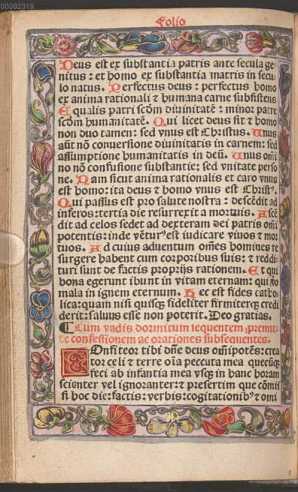 00002319
Folio
Deus est ex substantia patris ante secula ge
nitus: et homo ex substantia matris in secu
lo natus. Perfectus deus: perfectus homo
ex anima rationali & humana carne subsistens
Equalis patri scdm diuinitatē: minor patre
scdm humanitatē. Qui licet deus sit & homo
non duo tamen: sed vnus est Christus. Unus
aūt nō conuersione diuinitatis in carnem: sed
assumptione humanitatis in deū. Unus oīn
no nō confusione substantie: sed vnitate perso
ne. Nam sicut anima rationalis et caro vnus
est homo: ita deus & homo vnus est Christ⁹.
Qui passus est pro salute nostra: descēdit ad
inferos: tertia die resurrexit a mortuis. Ascē
dit ad celos sedet ad dexteram dei patris oīm
potentis: inde vētur⁹ est iudicare viuos & mor
tuos. Ad cuius aduentum oēs homines re
surgere habent cum corporibus suis: & reddi
turi sunt de factis proprijs rationem. Et qui
bona egerunt ibunt in vitam eternam: qui ꝟo
mala in ignem eternum. Hec est fides catho
lica: quam nisi quisq; fideliter firmiterq; credi
derit: saluus esse non poterit. Deo gratias.
Cum vadis dormitum sequentem premit
te confessionem ac orationes subsequentes.
Confiteor tibi dn̄e deus oīm potēs: crea
tor celi & terre oīa peccata mea quecūq;
feci ab infantia mea vsq; in hanc horam
scienter vel ignoranter: & presertim que cōmi
si hoc die: factis: verbis: cogitationib⁹ & omi